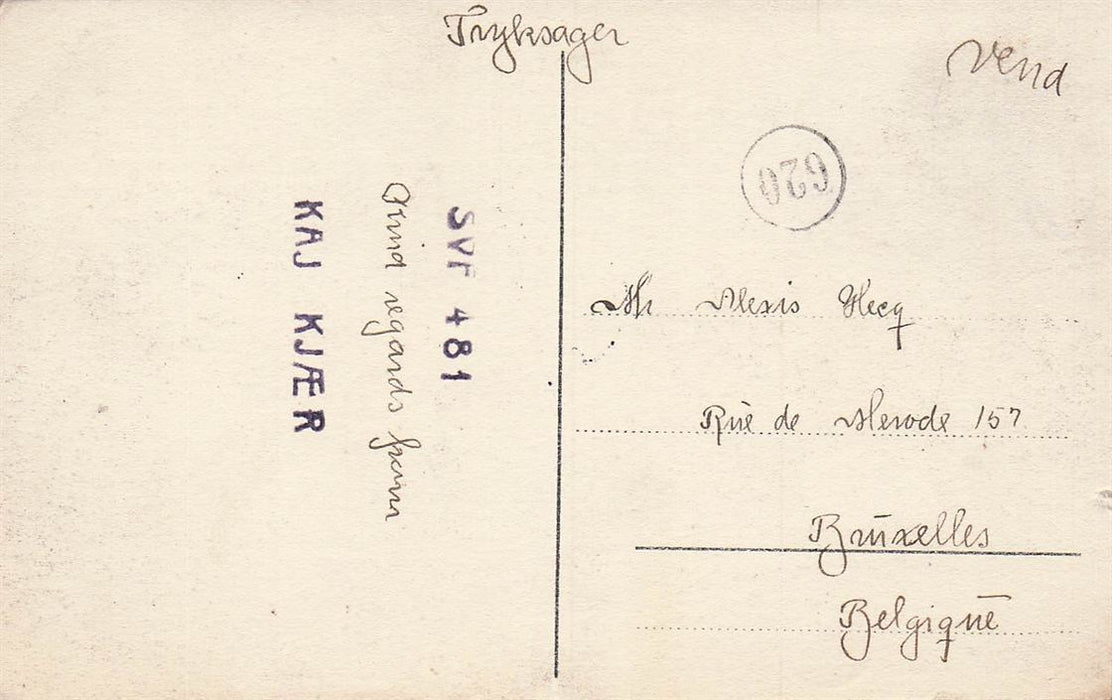 Tryksager
Vend
620
SVF 481
Kind regards from
KAJ KJÆR
Mr Alexis Hecq
Rue de Merode 157
Bruxelles
Belgique